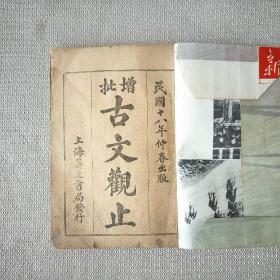 民國十八年仲春出版
增批
古文觀止
上海
書局發行
新